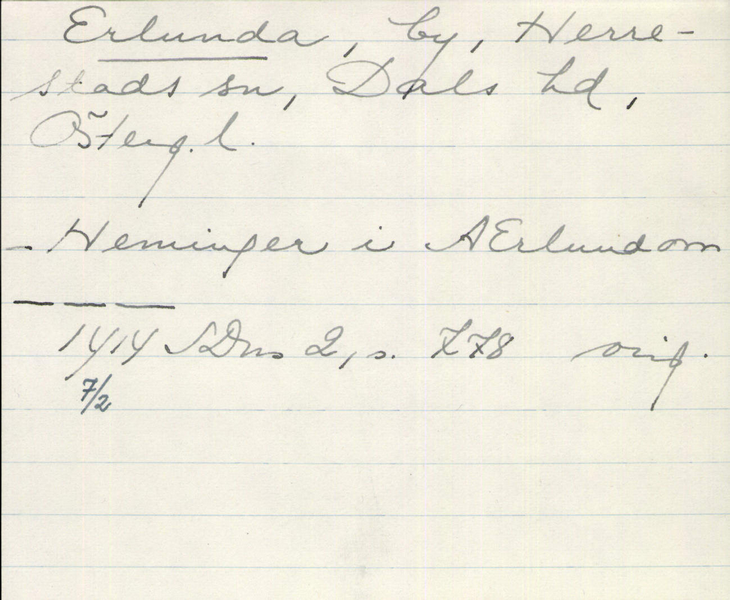 Erlunda, by, Herre-
stads sn, Dals hd,
Österg. l.
- Heminger i AErlundom
— — —
1414 SDns 2, s. 778 orig.
7/2